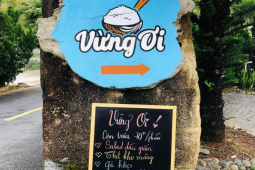 Vừng Ơi
Vừng Ơi !
Cơm trưa
Salad dầu giấm
Thịt kho măng
gà kho